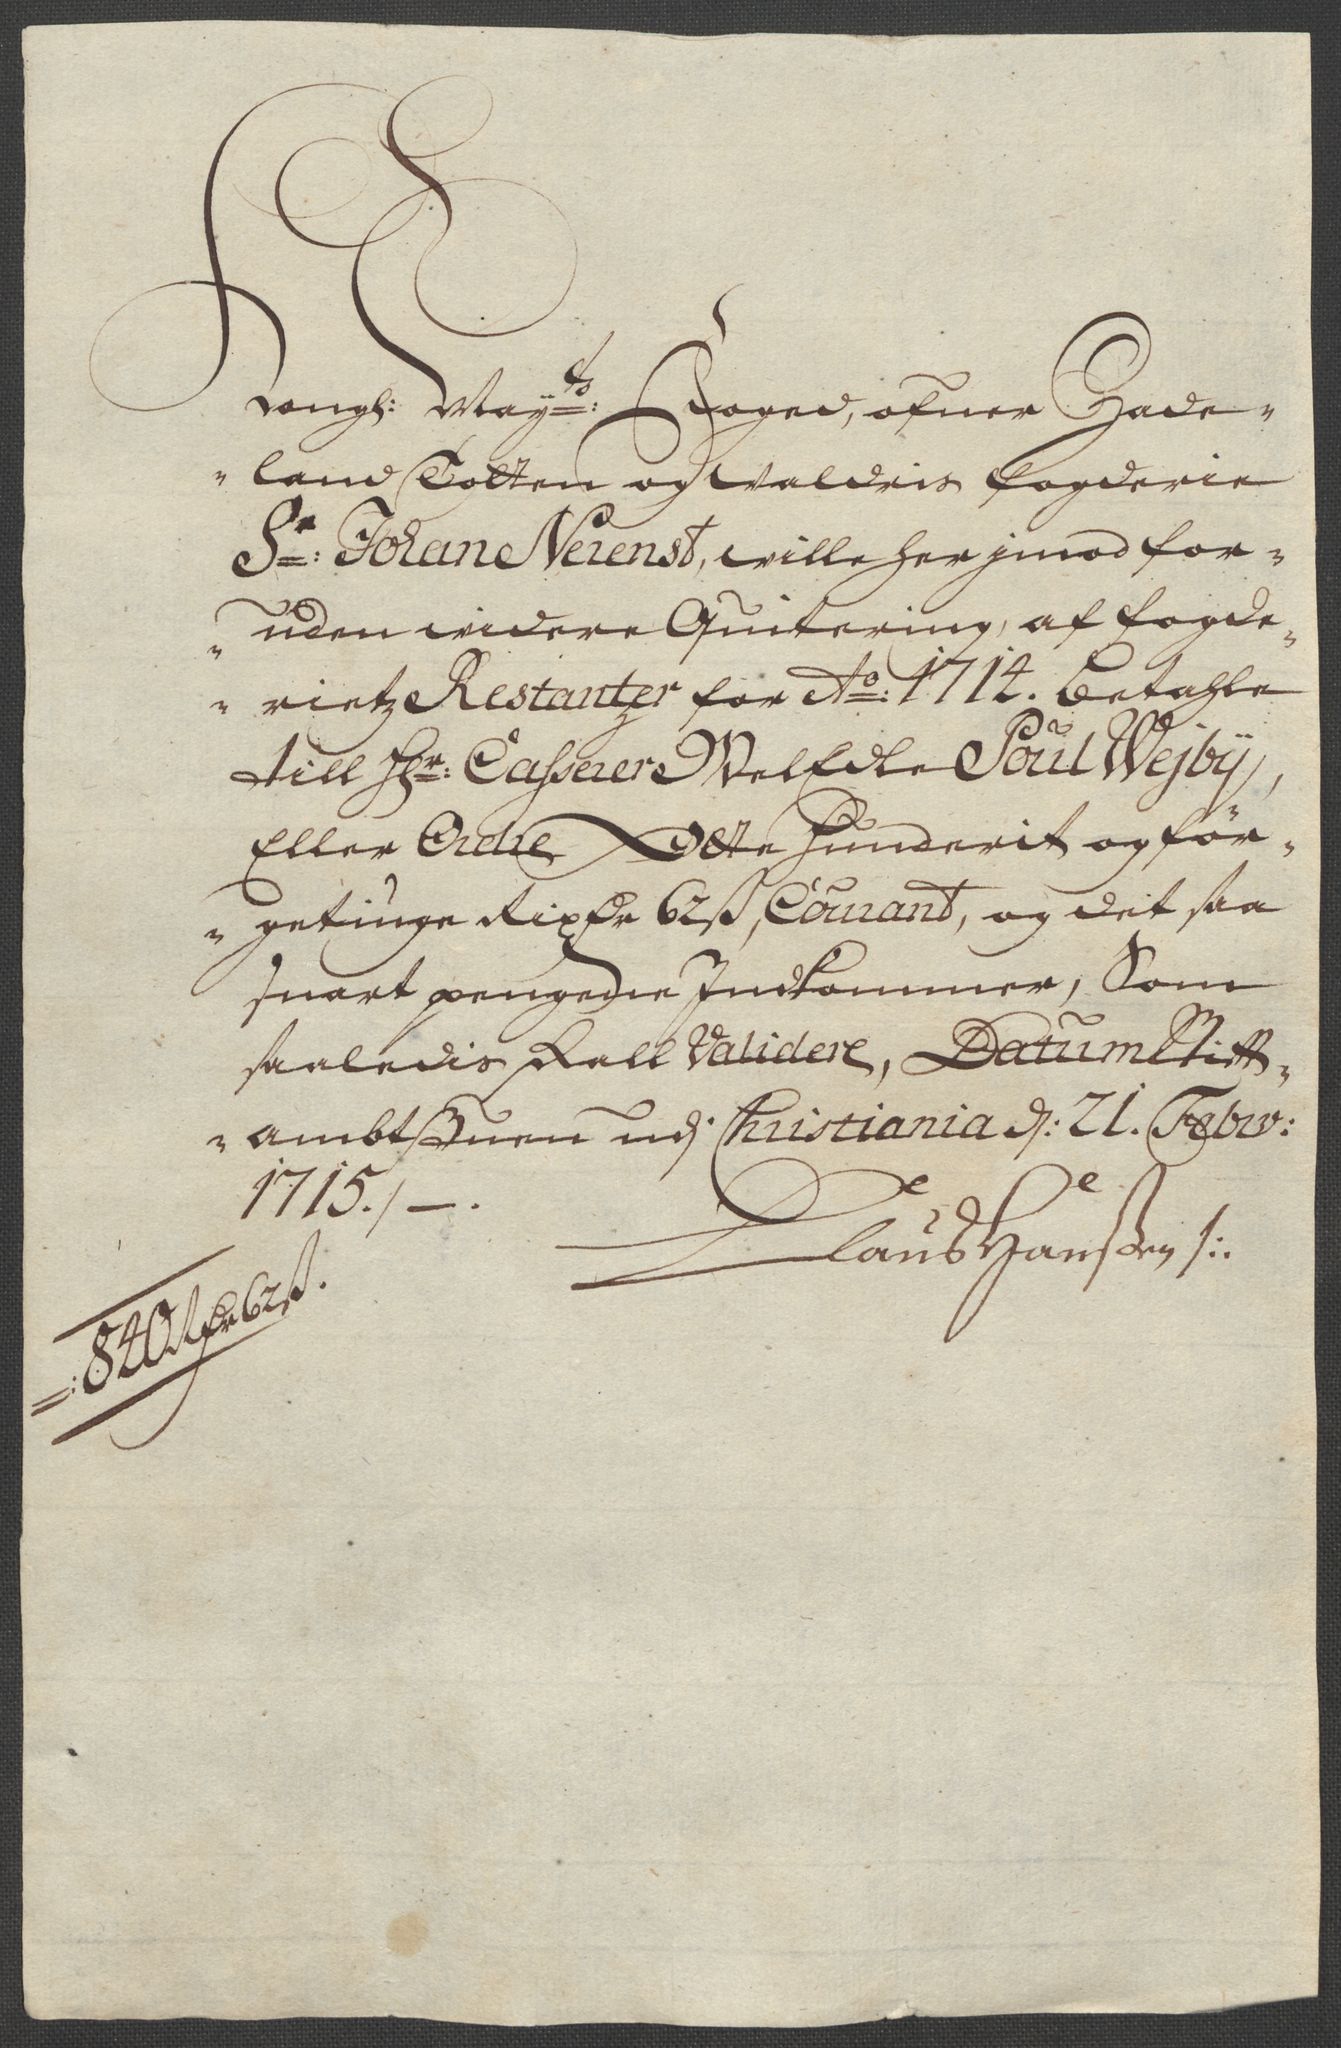 Kongl: Mayts: Foged, ofver Hade-
-land Totten og Waldris fogderie
Sr: Johan Neienst, wille her jmod for-
-uden widere Quitering, af fogde-
-rietz Restantzer for Ao: 1714. betahle
till Hr: Casserer Wel Edle Poul Wejbÿ,
Eller Ordre Otte hunderit og för-
-getiuge Rixdr 62 ß, Courant, og det saa
snart pengene Indkommer, Som
saaledis skall Validere, Datum Stift-
-ambtstuen udj Christiania d: 21. Febru:
1715. / — .
Claus Hanßen /:.
=: 840 Rdr 62 ß.